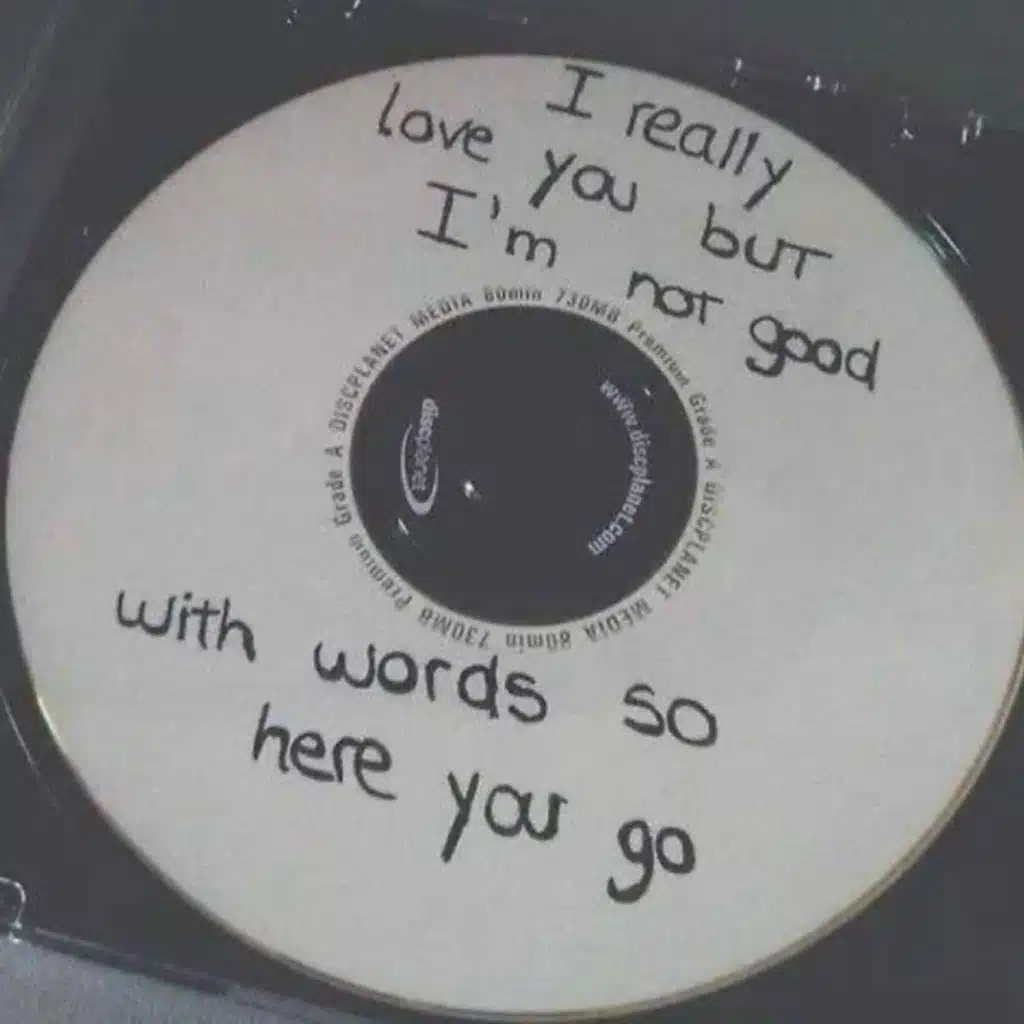 I really
love you but
I'm not good
DISCPLANET MEDIA 80min 730MB Premium Grade A DISCPLANET MEDIA 80min 730MB Premium Grade A
discplanet
www.discplanet.com
with words so
here you go